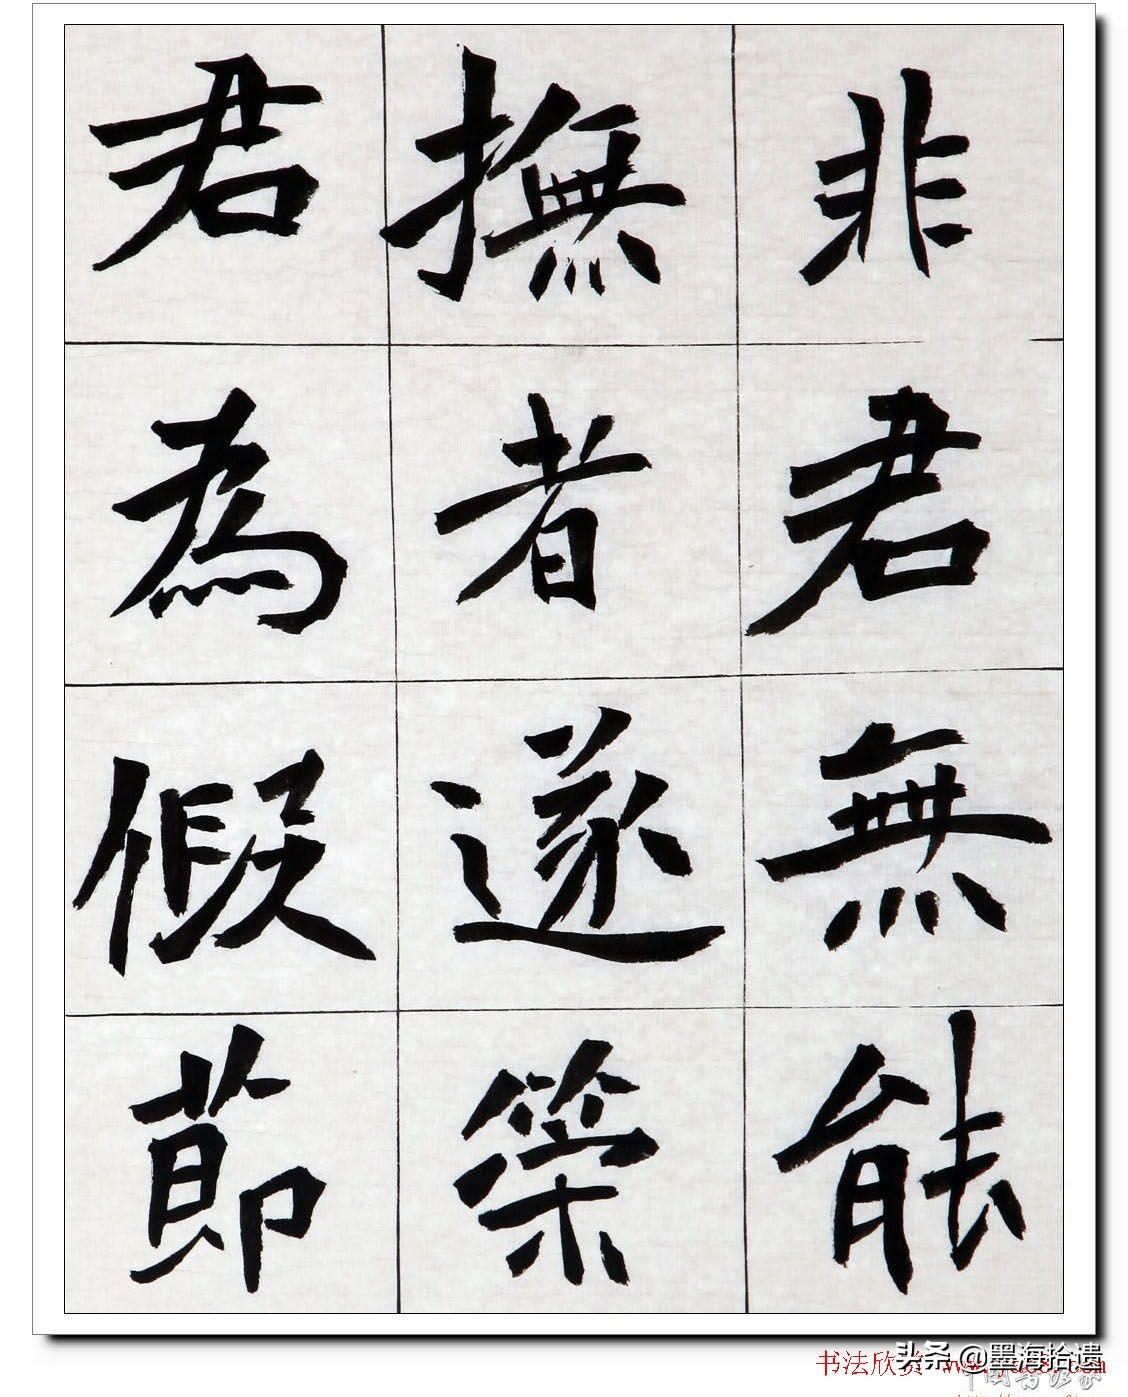 非君無能
撫者遂榮
君為假節
书法欣赏
头条 @墨海拾遗